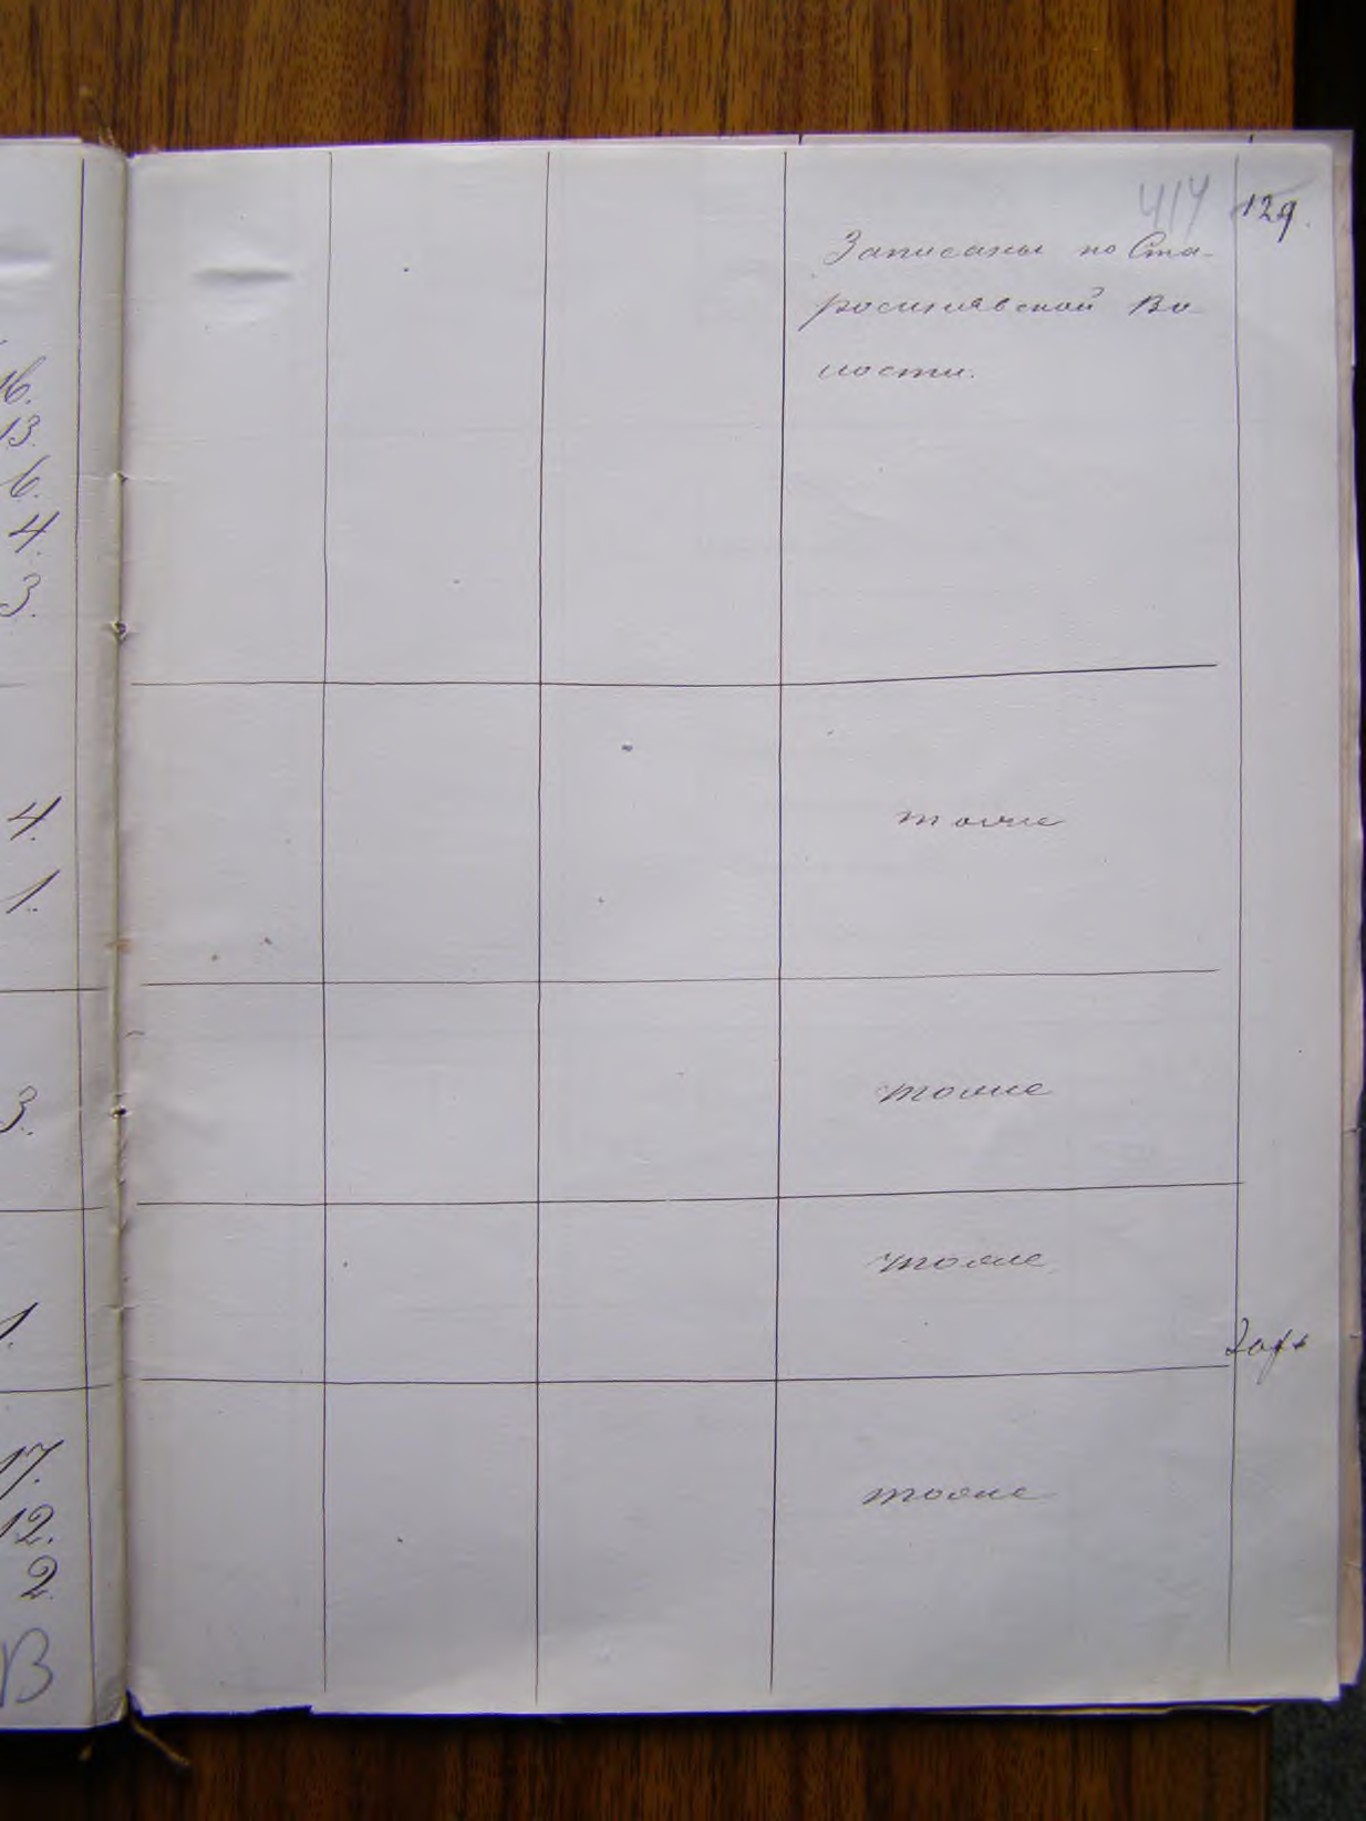 16.
13.
6.
4.
3.
4.
1.
3.
1.
17.
12.
2.
В
414 129.
Записаны по Ста-
росинявской Во-
лости.
тоже
тоже
тоже
тоже